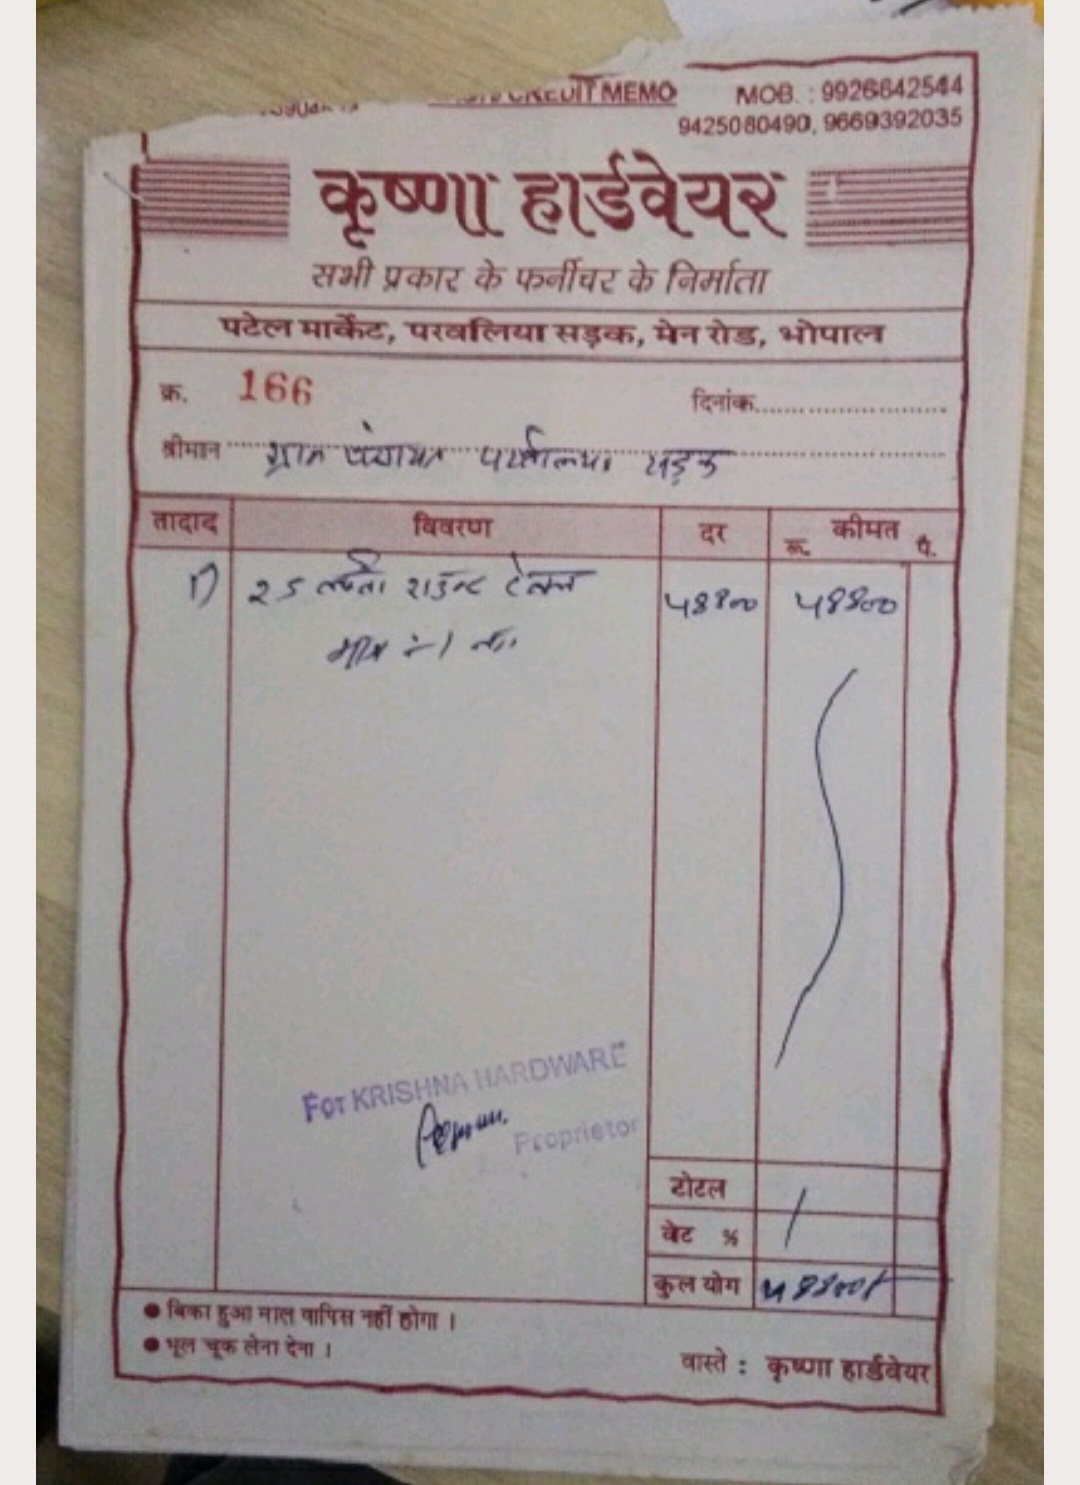 CREDIT MEMO MOB. : 9926642544
9425080490, 9669392035
कृष्णा हार्डवेयर
सभी प्रकार के फर्नीचर के निर्माता
पटेल मार्केट, परवलिया सड़क, मेन रोड, भोपाल
क्र. 166 दिनांक
श्रीमान ग्राम पंचायत परवलिया सड़क
तादाद विवरण दर कीमत
रू. पै.
1) 25 राउन्ड टेबल
For KRISHNA HARDWARE
Proprietor
टोटल
वेट %
कुल योग
● बिका हुआ माल वापिस नहीं होगा ।
● भूल चूक लेना देना ।
वास्ते : कृष्णा हार्डवेयर